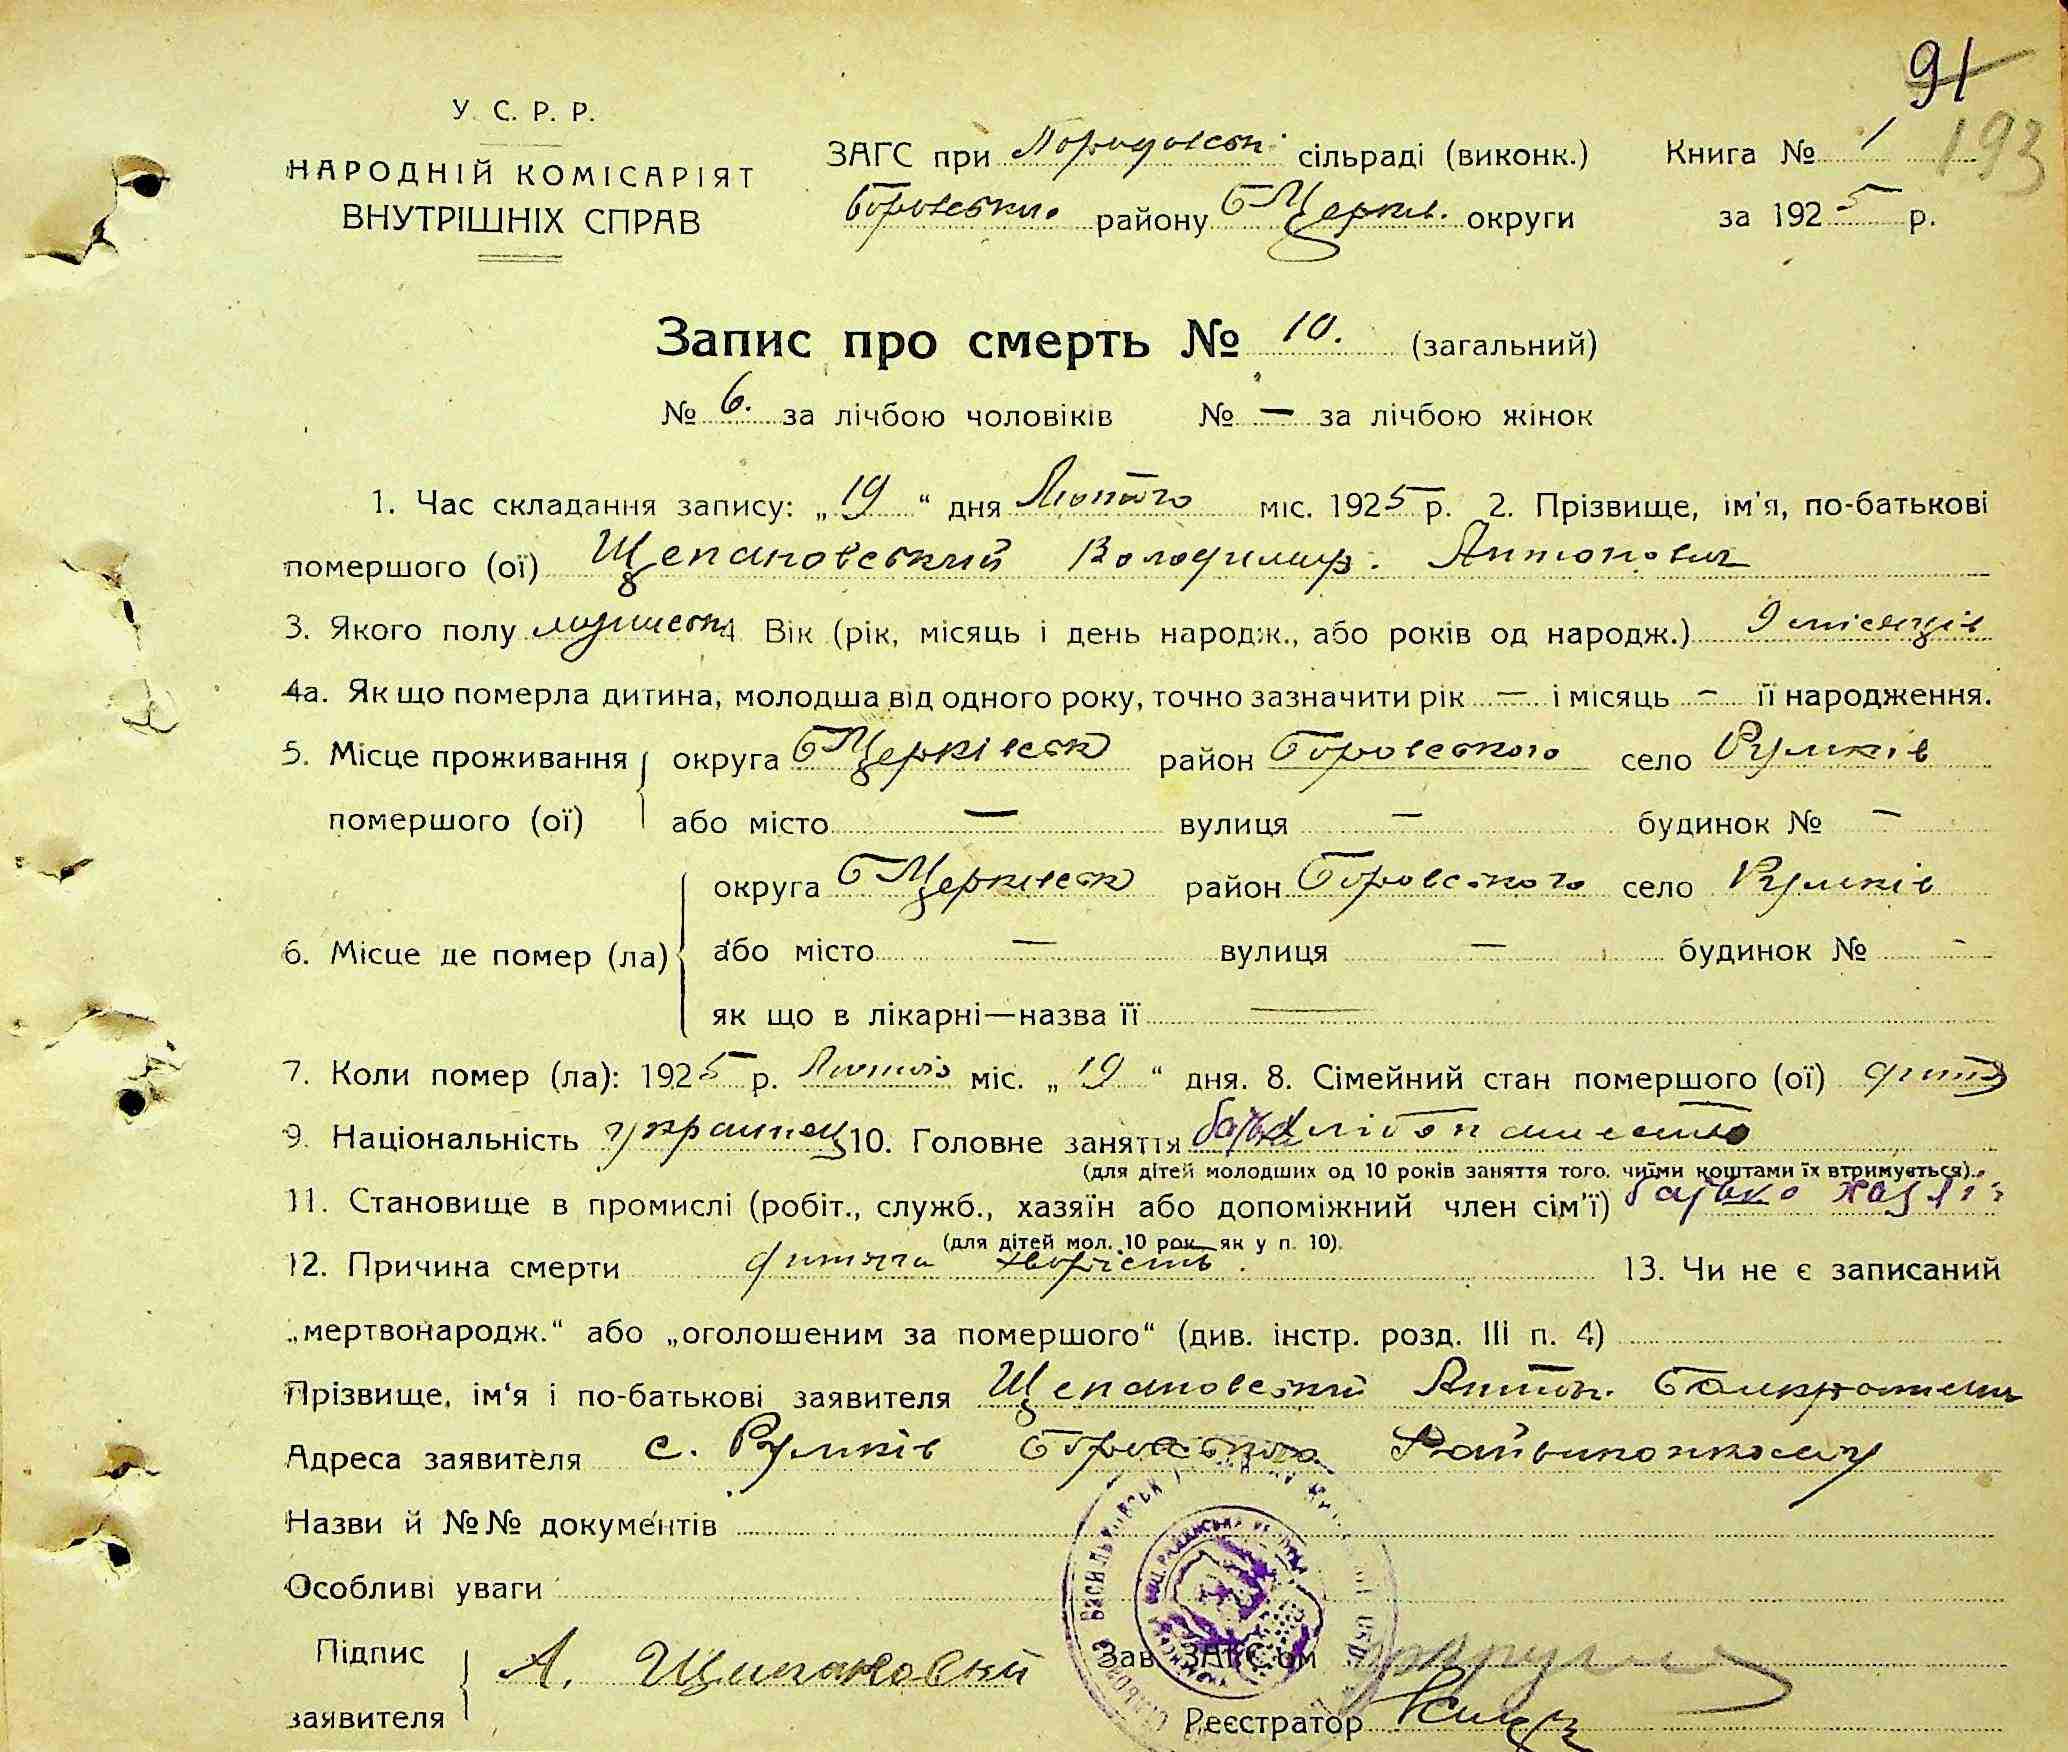 91
193
У. С. Р. Р.
НАРОДНІЙ КОМІСАРІЯТ
ВНУТРІШНІХ СПРАВ
ЗАГС при сільраді (виконк.) Книга № 1
Боровського району БЦеркв. округи за 1925 р.
Запис про смерть № 10. (загальний)
№ 6. за лічбою чоловіків № — за лічбою жінок
1. Час складання запису: „19“ дня Лютого міс. 1925 р. 2. Прізвище, ім'я, по-батькові
помершого (ої) Щепановський Володимир. Антонович
3. Якого полу 4 Вік (рік, місяць і день народж., або років од народж.) 9 місяців
4а. Як що померла дитина, молодша від одного року, точно зазначити рік — і місяць — її народження.
5. Місце проживання округа БЦерківськ район Боровського село Руликів
помершого (ої) або місто — вулиця — будинок № —
округа БЦерківськ район Боровського село Руликів
6. Місце де помер (ла) або місто — вулиця — будинок № -
як що в лікарні—назва її —
7. Коли помер (ла): 1925 р. Лютого міс. „19“ дня. 8. Сімейний стан помершого (ої)
9. Національність українец 10. Головне заняття
(для дітей молодших од 10 років заняття того, чиїми коштами їх втримується).
11. Становище в промислі (робіт., служб., хазяїн або допоміжний член сім'ї) батько хазяїн
(для дітей мол. 10 рок. як у п. 10).
12. Причина смерти дитяча хворість. 13. Чи не є записаний
„мертвонародж.“ або „оголошеним за помершого“ (див. інстр. розд. III п. 4)
Прізвище, ім'я і по-батькові заявителя Щепановський Антон.
Адреса заявителя с. Руликів Боровського Райвиконкому
Назви й №№ документів
Особливі уваги
Підпис
заявителя А.
Зав. ЗАГС'ом
Реєстратор